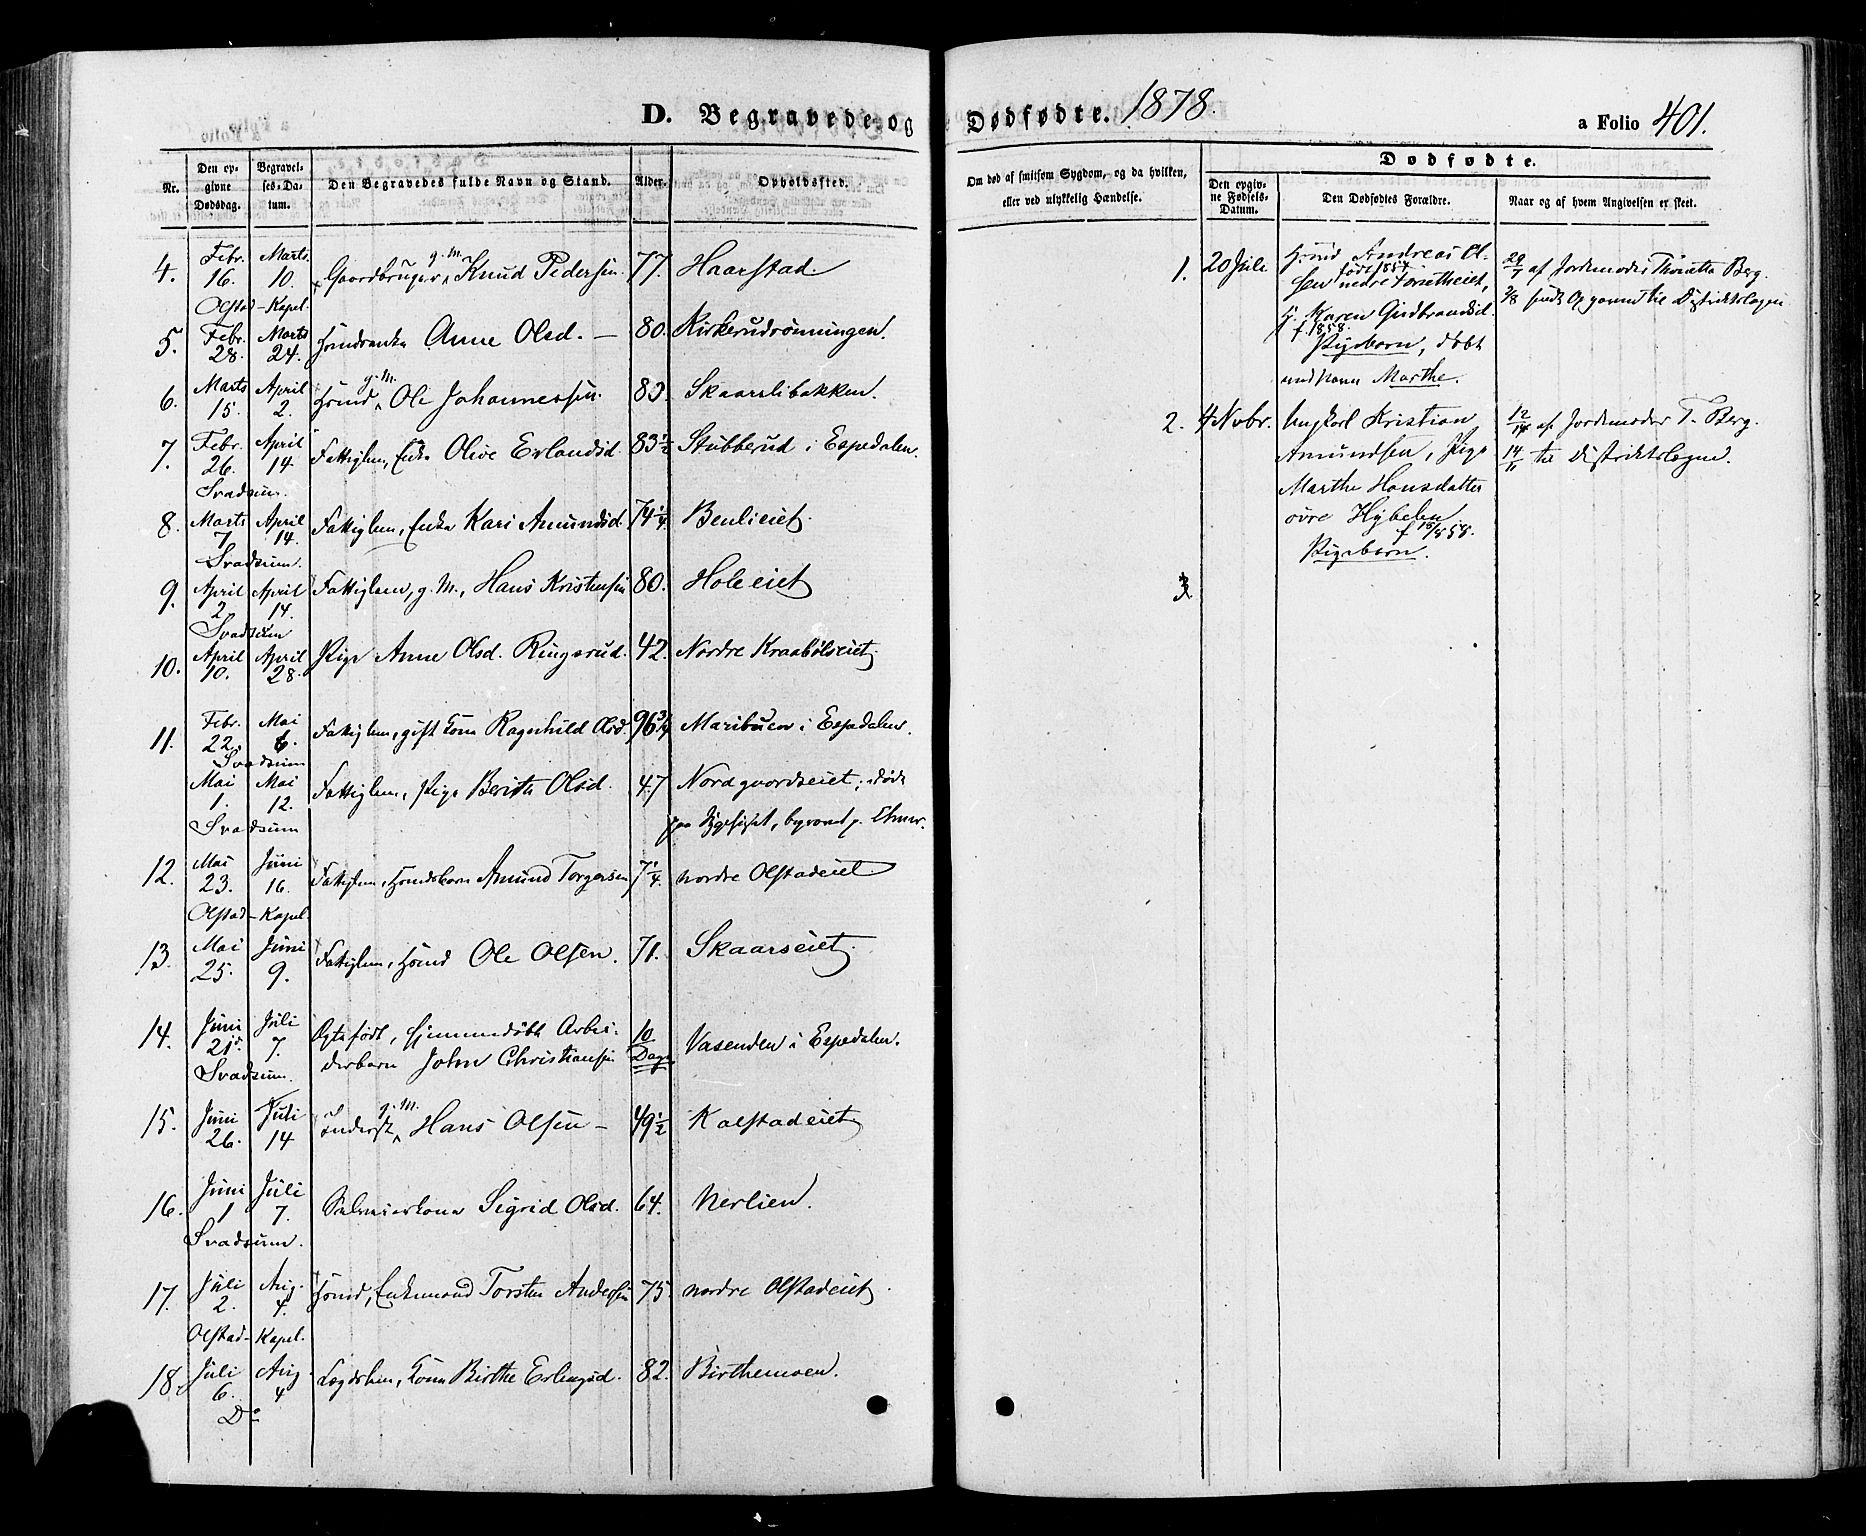 D. Begravede og Dødfødte. 1878.
a Folio 401.
Nr.
Den opgivne Dødsdag.
Begravelses-Datum.
Den Begravedes fulde Navn og Stand.
Alder.
Opholdssted.
Om død af smitsom Sygdom, og da hvilken,
eller ved ulykkelig Hændelse.
Dødfødte.
Den opgivne Fødsels-Datum.
Den Dødfødtes Forældre.
Naar og af hvem Angivelsen er skeet.
4. Febr. 16. Marts 10. Gaardbruger, g. M. Knud Pedersen. 77. Haarstad.
Olstad-Kapel.
5. Febr. 28. Marts 24. Hmdsenke Anne Olsd. — 80. Kirkerudrønningen.
6. Marts 15. April 2. Hsmd g. M. Ole Johannessen. 83. Skaarslibakken.
7. Febr. 26. April 14. Fattiglem, Enke Olive Erlandsd. 83 1/2 Stubberud i Espedalen.
Svadsum.
8. Marts 7. April 14. Fattiglem, Enke Kari Amundsd. 74 1/4 Benlieiet.
Svadsum.
9. April 2. April 14. Fattiglem, g. M., Hans Kristensen 80. Holeeiet
Svadsum
10. April 10. April 28. Pige Anne Olsd. Ringsrud. 42. Nordre Kraabølseiet.
11. Febr. 22. Mai 6. Fattiglem, gift Kone Ragnhild Olsd. 96 3/4 Maribuen i Espedalen.
Svadsum
Mai 1. Mai 12. Fattiglem, Pige Berith Olsd. 47 Nordgaardseiet, død
paa Sygehuset, begravet p.
Svadsum
12. Mai 23. Juni 16. Fattiglem, Hsmdsbarn Amund Torgersen 7 1/4. nordre Olstadeiet
Olstad-Kapel.
13. Mai 25. Juni 9. Fattiglem, Hsmd Ole Olsen. 71. Skaarseiet.
14. Juni 21. Juli 7. Ægtefødt, hjemmedøbt Arbei-
derbarn John Christiansen 10 Dage Vasenden i Espedalen.
Svadsum.
15. Juni 26. Juli 14 Inderst g. M. Hans Olsen — 49 1/2 Kalstadeiet
16. Juni 1 Juli 7. Selveierkone Sigrid Olsd. 64. Nerlien.
Svadsum.
17. Juli 2. Aug. 4. Hsmd, Enkemand Torsten Andersen 75. nordre Olstadeiet.
Olstad-Kapel.
18. Juli 6. Aug. 4 Lægdslem, Kone Birthe Erlingsd. 82. Birthemoen.
Do
1. 20 Juli Hsmd Andreas Ol-
sen født 1854 nedre Forsetheiet,
H. Karen Gudbrandsd.
f. 1858.
Pigebarn, døbt
med Navn Marthe.
29/7 af Jordemoder Thorietta Berg.
2/8 sendt Opgaven til Distriktslægen
2. 4 Novbr. Ungkarl Kristian
Amundsen, Pige
Marthe Hansdatter
øvre Hybelen
f 18/8 58.
Pigebarn.
12/11 af Jordemoder T. Berg.
14/11 til Distriktslægen.
3